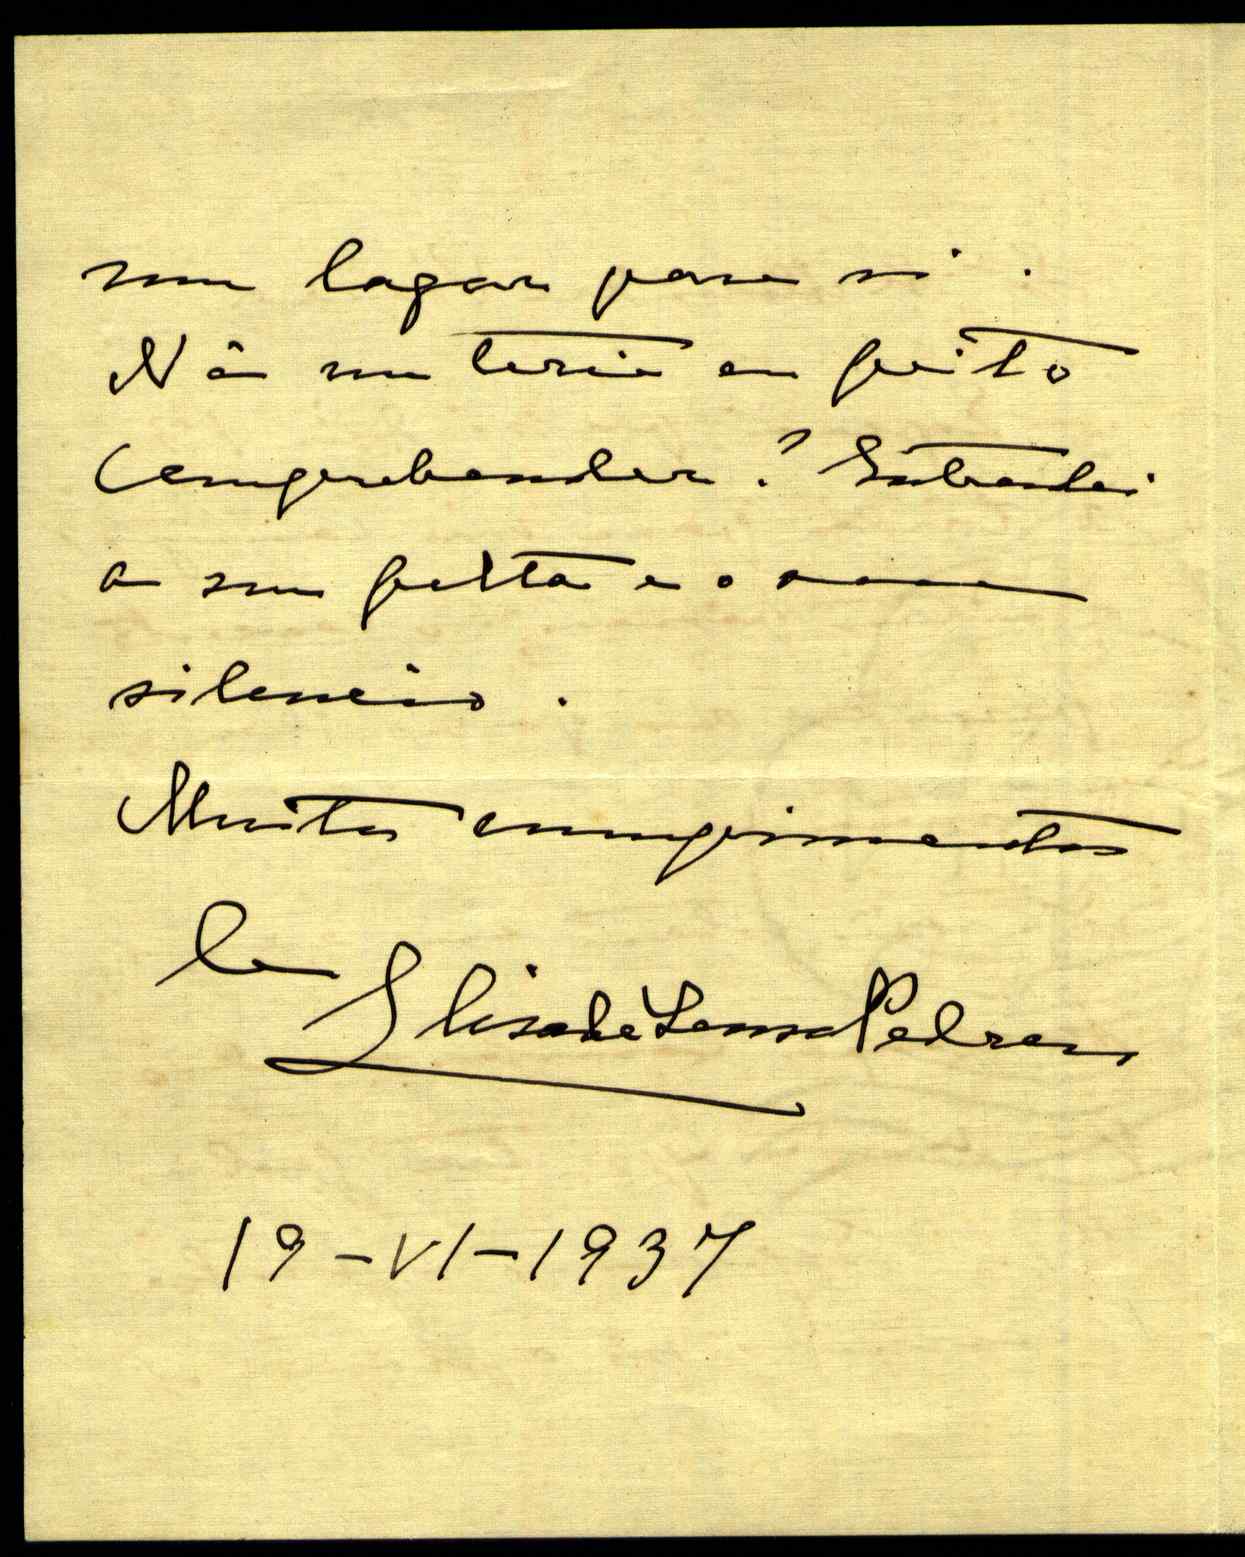 um logar para si.
Não me teria eu feito
comprehender? Entendi
a sua falta e o seu
silencio.
Muitos cumprimentos
da Elisa de Sousa Pedroso
19-VI-1937